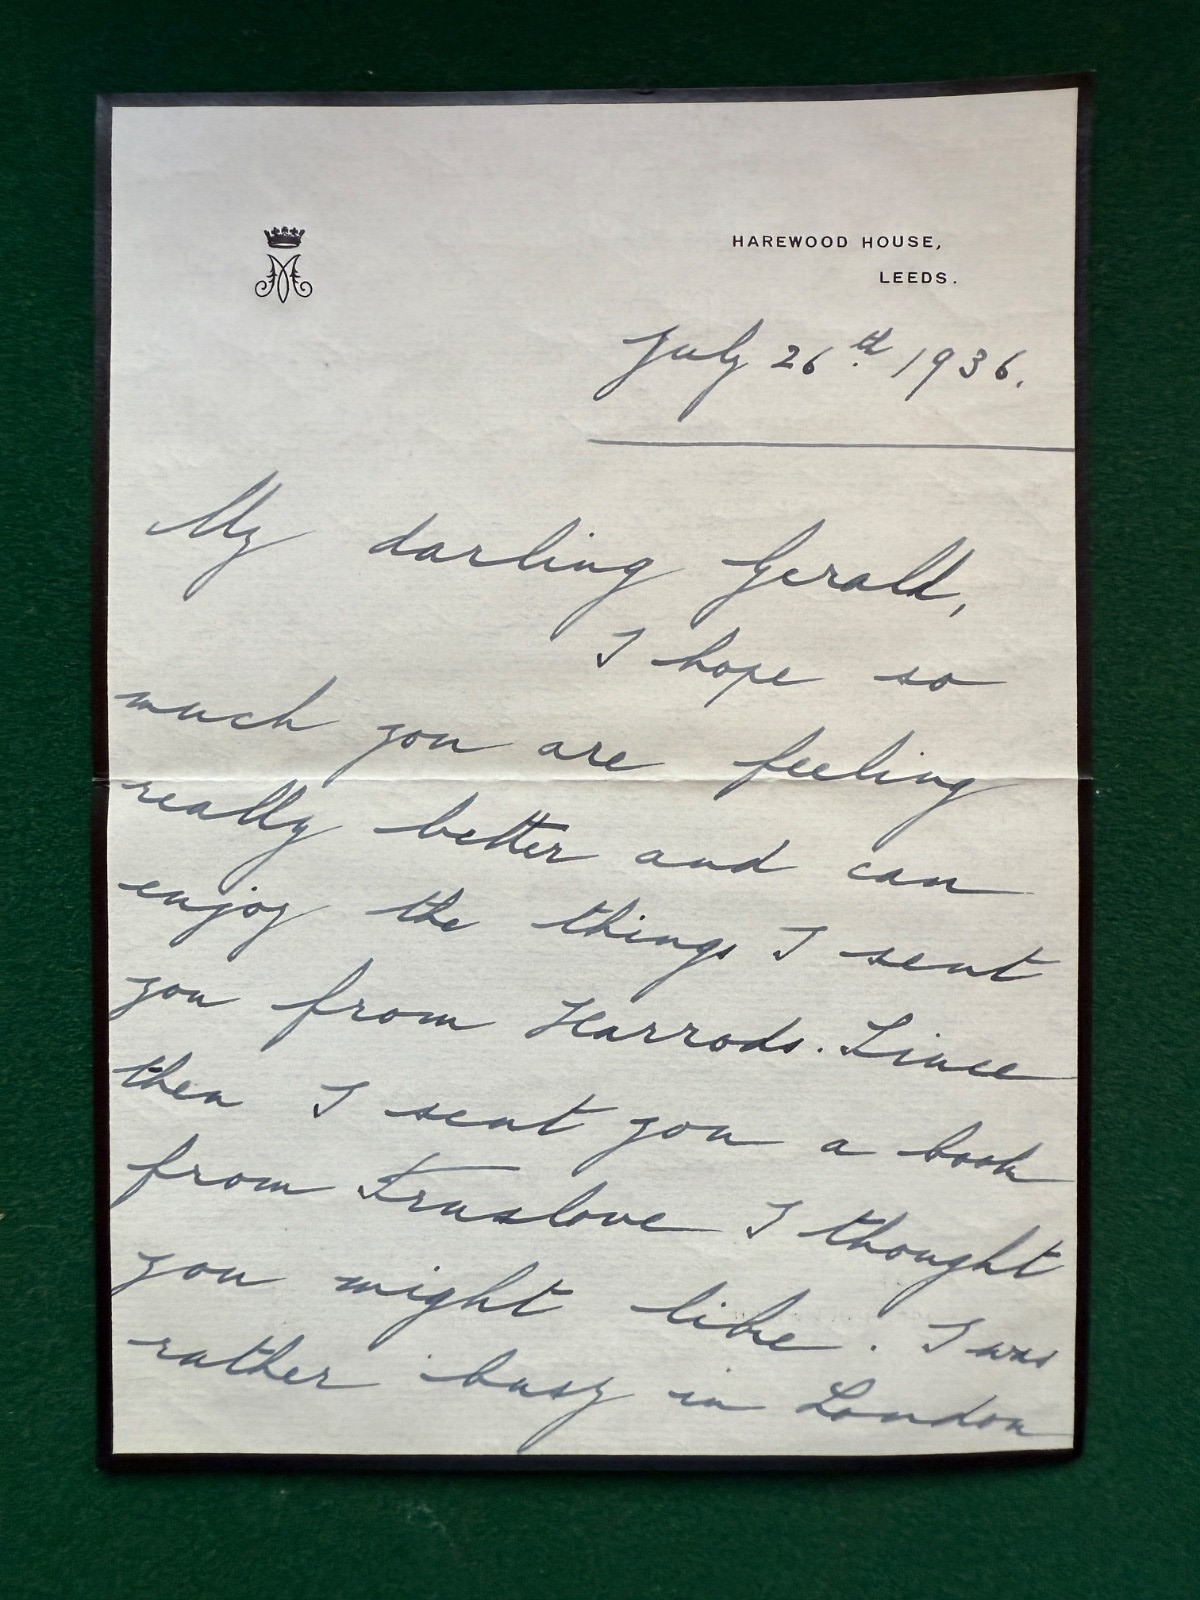 HAREWOOD HOUSE,
LEEDS.
July 26th 1936.
My darling Gerald,
I hope so
much you are feeling
really better and can
enjoy the things I sent
you from Harrods. Since
then I sent you a book
from Truslove I thought
you might like. I was
rather busy in London